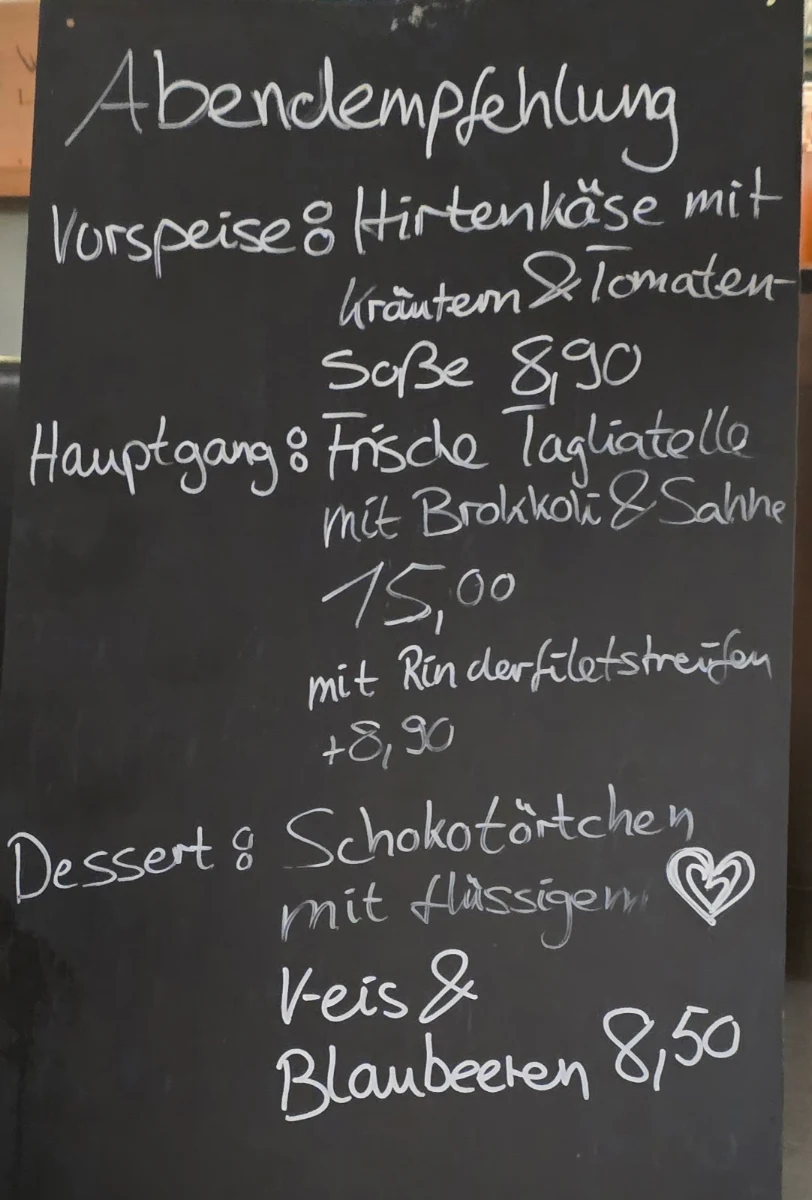 Abendempfehlung
Vorspeise: Hirtenkäse mit
Kräutern & Tomaten-
Soße 8,90
Hauptgang: Frische Tagliatelle
mit Brokkoli & Sahne
15,00
mit Rinderfiletstreifen
+8,90
Dessert: Schokotörtchen
mit flüssigem
V-eis &
Blaubeeren 8,50